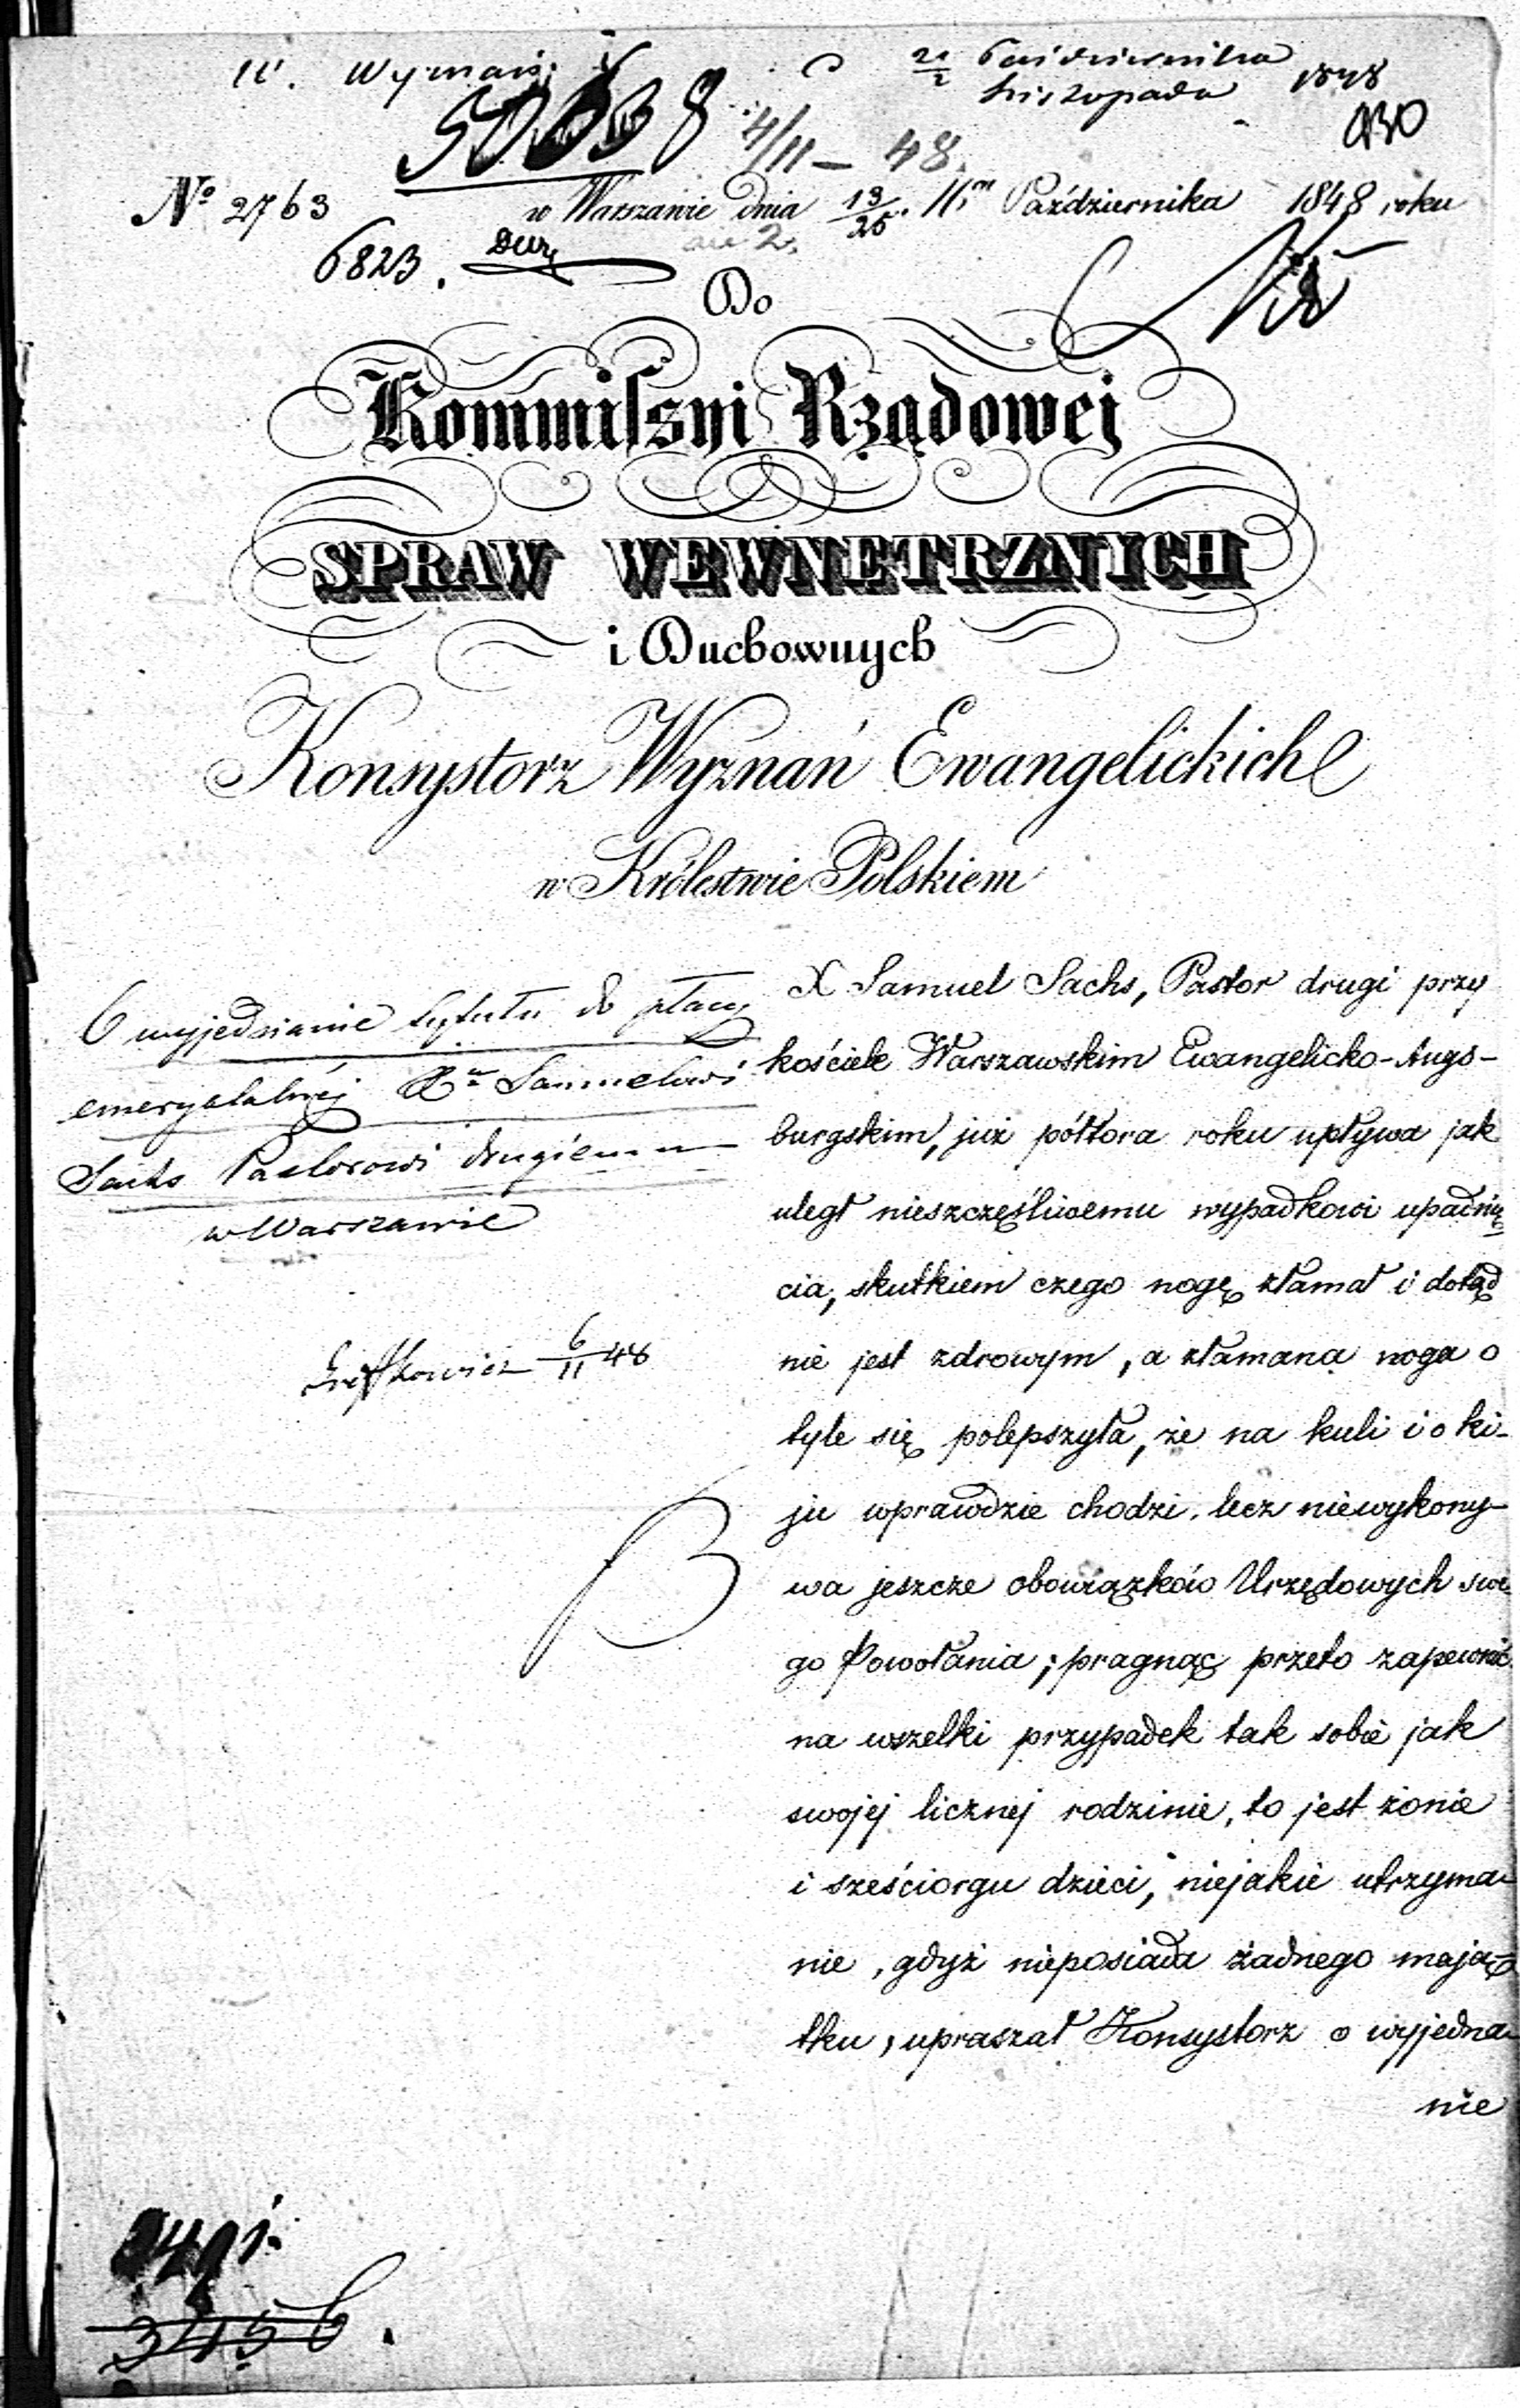 21/2 Października
Listopada 1848
4/11 – 48.
No 2763 w Warszawie dnia 13/25. Października 1848 roku
6823.
Do
Kommissyi Rządowej
SPRAW WEWNETRZNYCH
i Duchownych
Konsystorz Wyznań Ewangelickich
w Królestwie Polskiem
O wyjednanie tytułu do płacy
emerytalnéj Samuelowi
Sachs Pastorowi drugiemu
w Warszawie
6/11 48
X Samuel Sachs, Pastor drugi przy
kościele Warszawskim Ewangelicko-Augs-
burgskim, już półtora roku upływa jak
uległ nieszczęśliwemu wypadkowi upadnię
cia, skutkiem czego nogę złamał i dotąd
nie jest zdrowym, a złamana noga o
tyle się polepszyła, że na kuli i o ki-
ju wprawdzie chodzi, lecz niewykony-
wa jeszcze obowiązków Urzędowych swe
go Powołania; pragnąc przeto zapewnić
na wszelki przypadek tak sobie jak
swojej licznej rodzinie, to jest żonie
i sześciorgu dzieci, niejakie utrzyma-
nie, gdyż nieposiada żadnego mają-
tku, upraszał Konsystorz o wyjedna-
nie
3456.